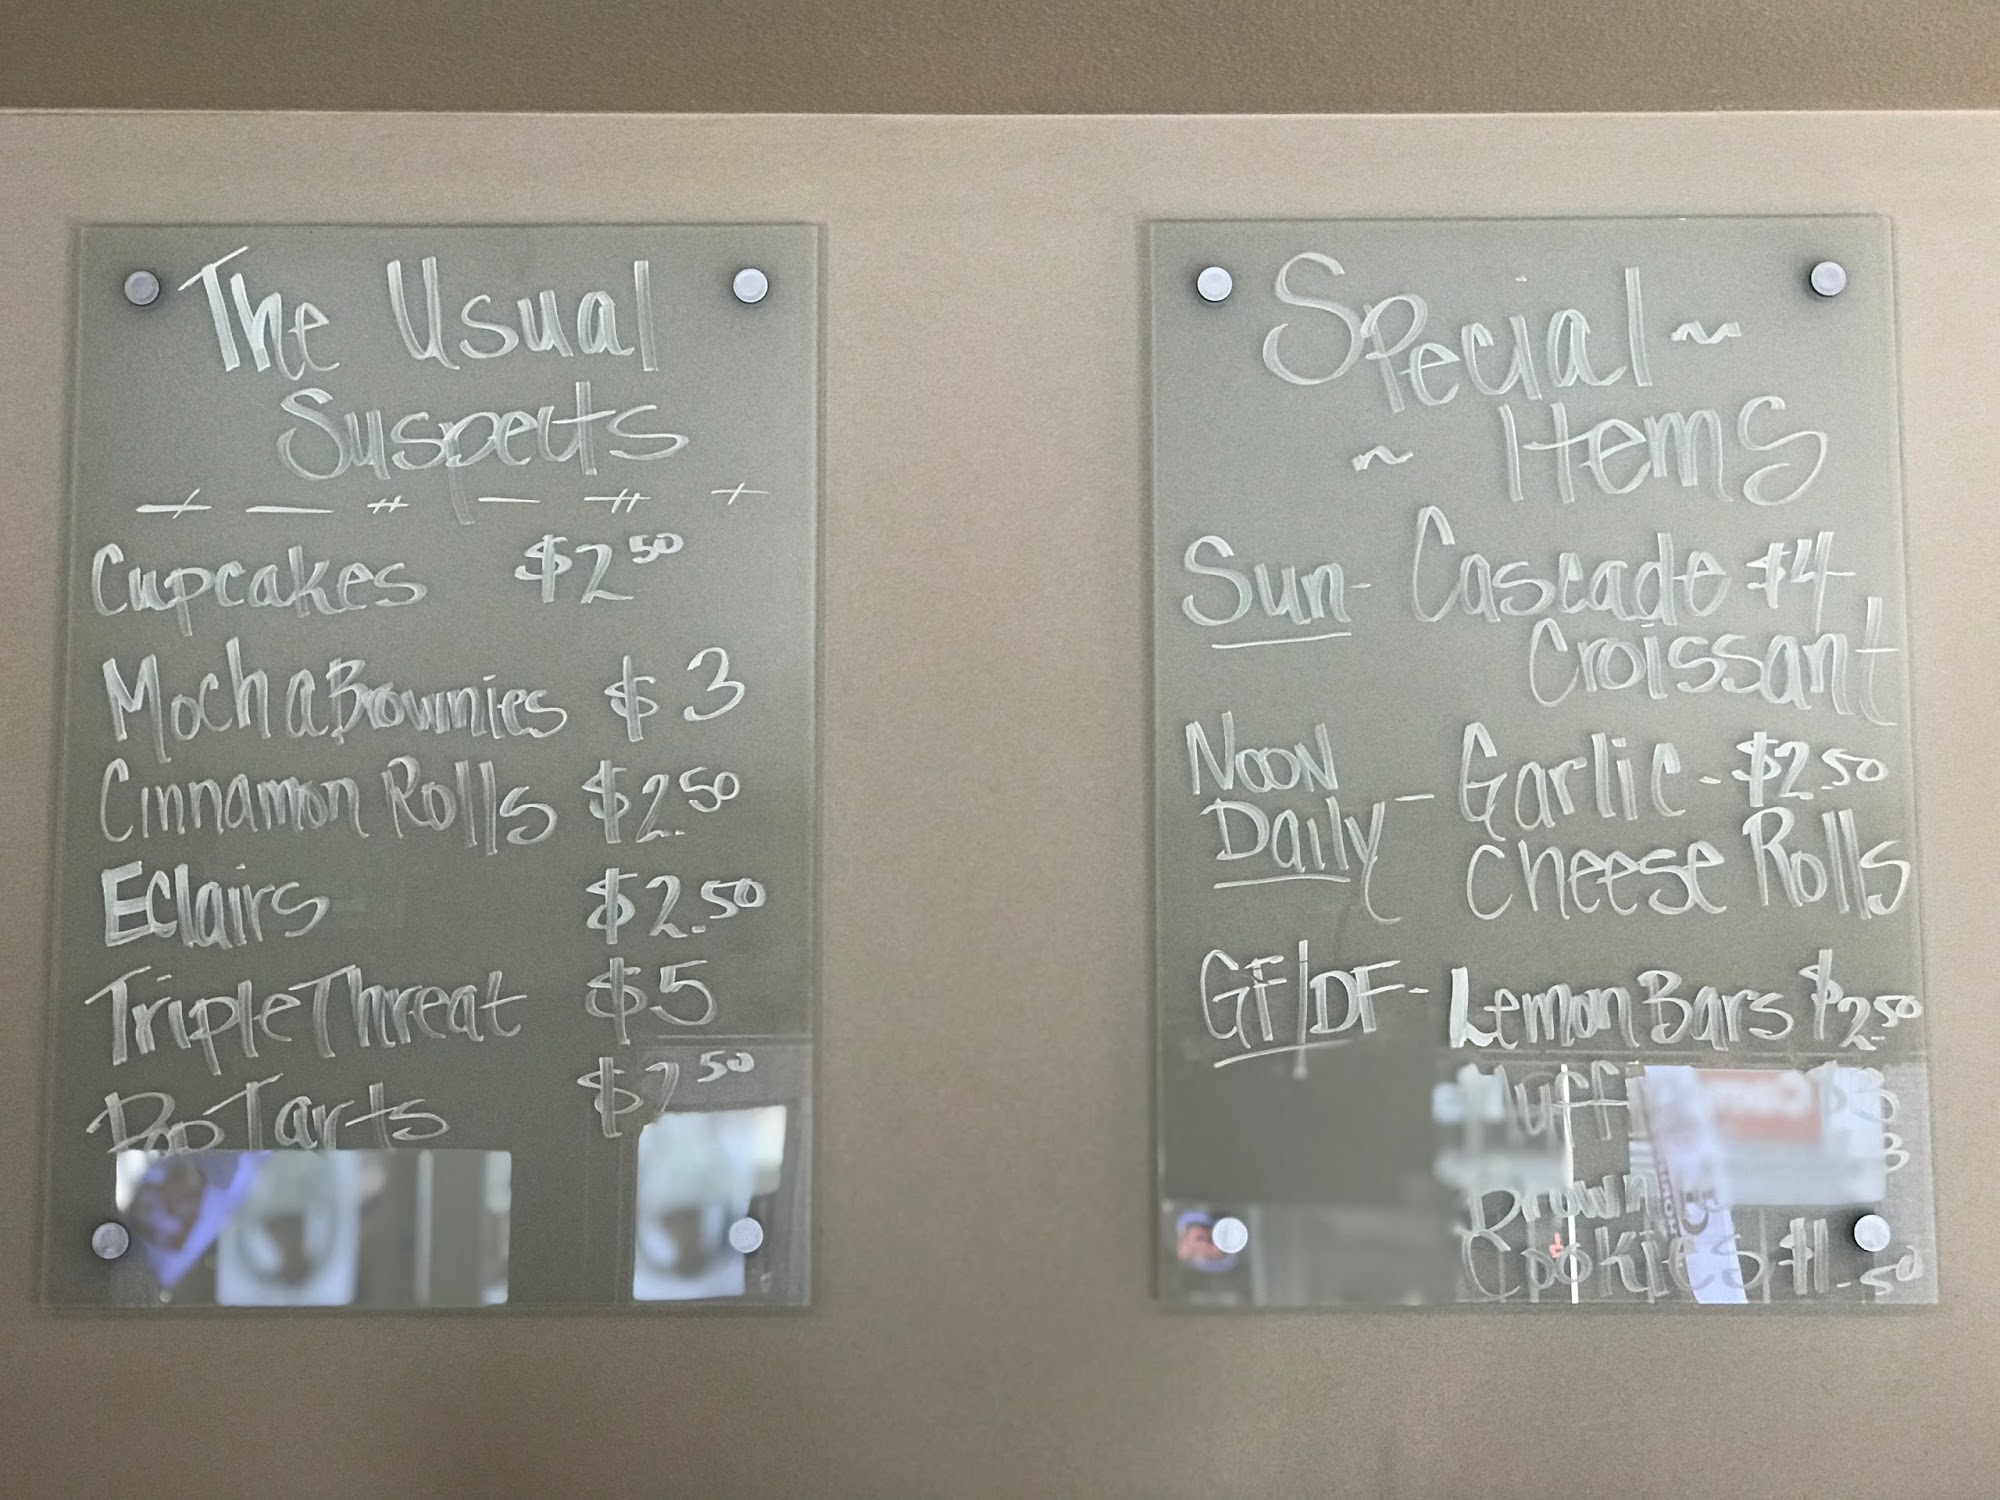 The Usual
Suspects
Cupcakes $2.50
Mocha Brownies $3
Cinnamon Rolls $2.50
Eclairs $2.50
Triple Threat $5
Pop Tarts
Special ~
~ Items
Sun - Cascade $4
Croissant
Noon
Daily - Garlic - $2.50
Cheese Rolls
GF/DF - Lemon Bars $2.50
Cookies $1.50